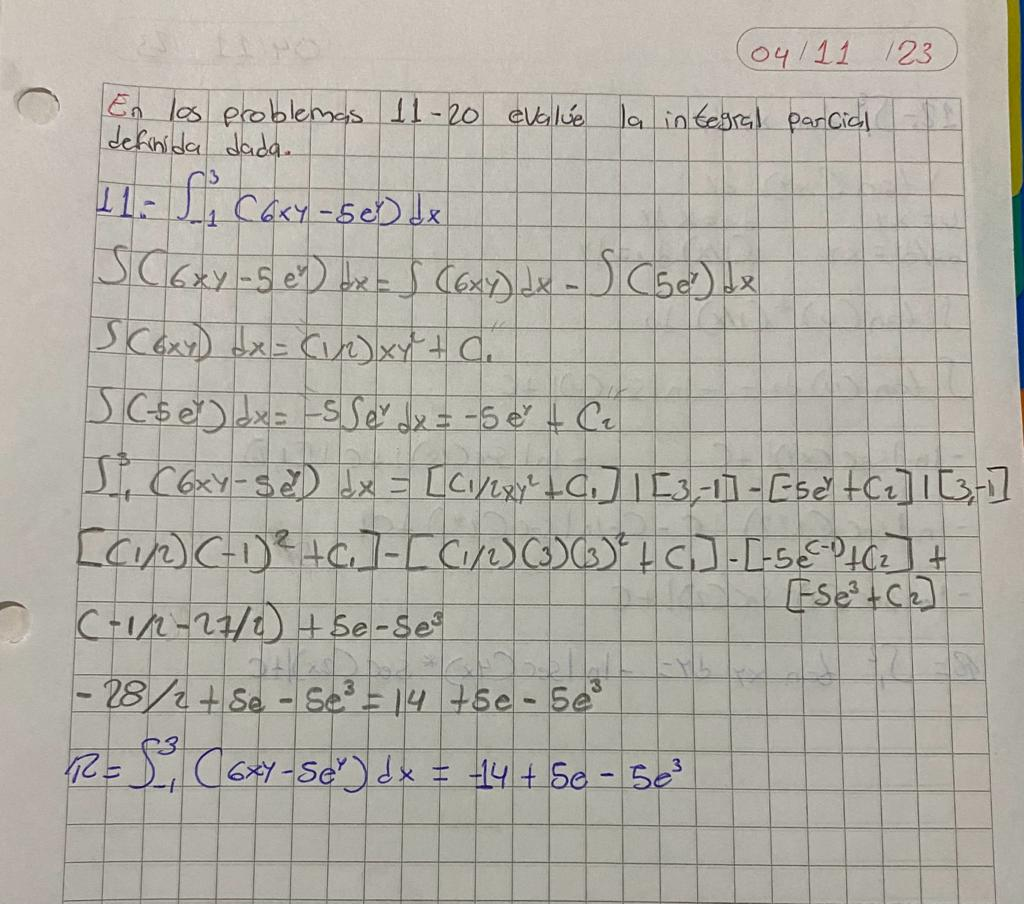 04/11/23
En los problemas 11-20 evalúe la integral parcial
definida dada.
11.- ∫₋₁³ (6xy-5eʸ) dx
∫(6xy-5eʸ) dx = ∫(6xy) dx - ∫(5eʸ) dx
∫(6xy) dx = (1/2)xy² + C₁
∫(-5eʸ) dx = -5∫eʸ dx = -5eʸ + C₂
∫₋₁³ (6xy-5eʸ) dx = [(1/2xy²+C₁] | [3,-1] - [-5eʸ+C₂] | [3,-1]
[(1/2)(-1)²+C₁] - [(1/2)(3)(3)²+C₁] - [-5e⁽⁻¹⁾+C₂] +
[-5e³+C₂]
(-1/2-27/2) + 5e-5e³
-28/2+5e-5e³=14 +5e-5e³
R= ∫₋₁³ (6xy-5eʸ) dx = -14+5e-5e³